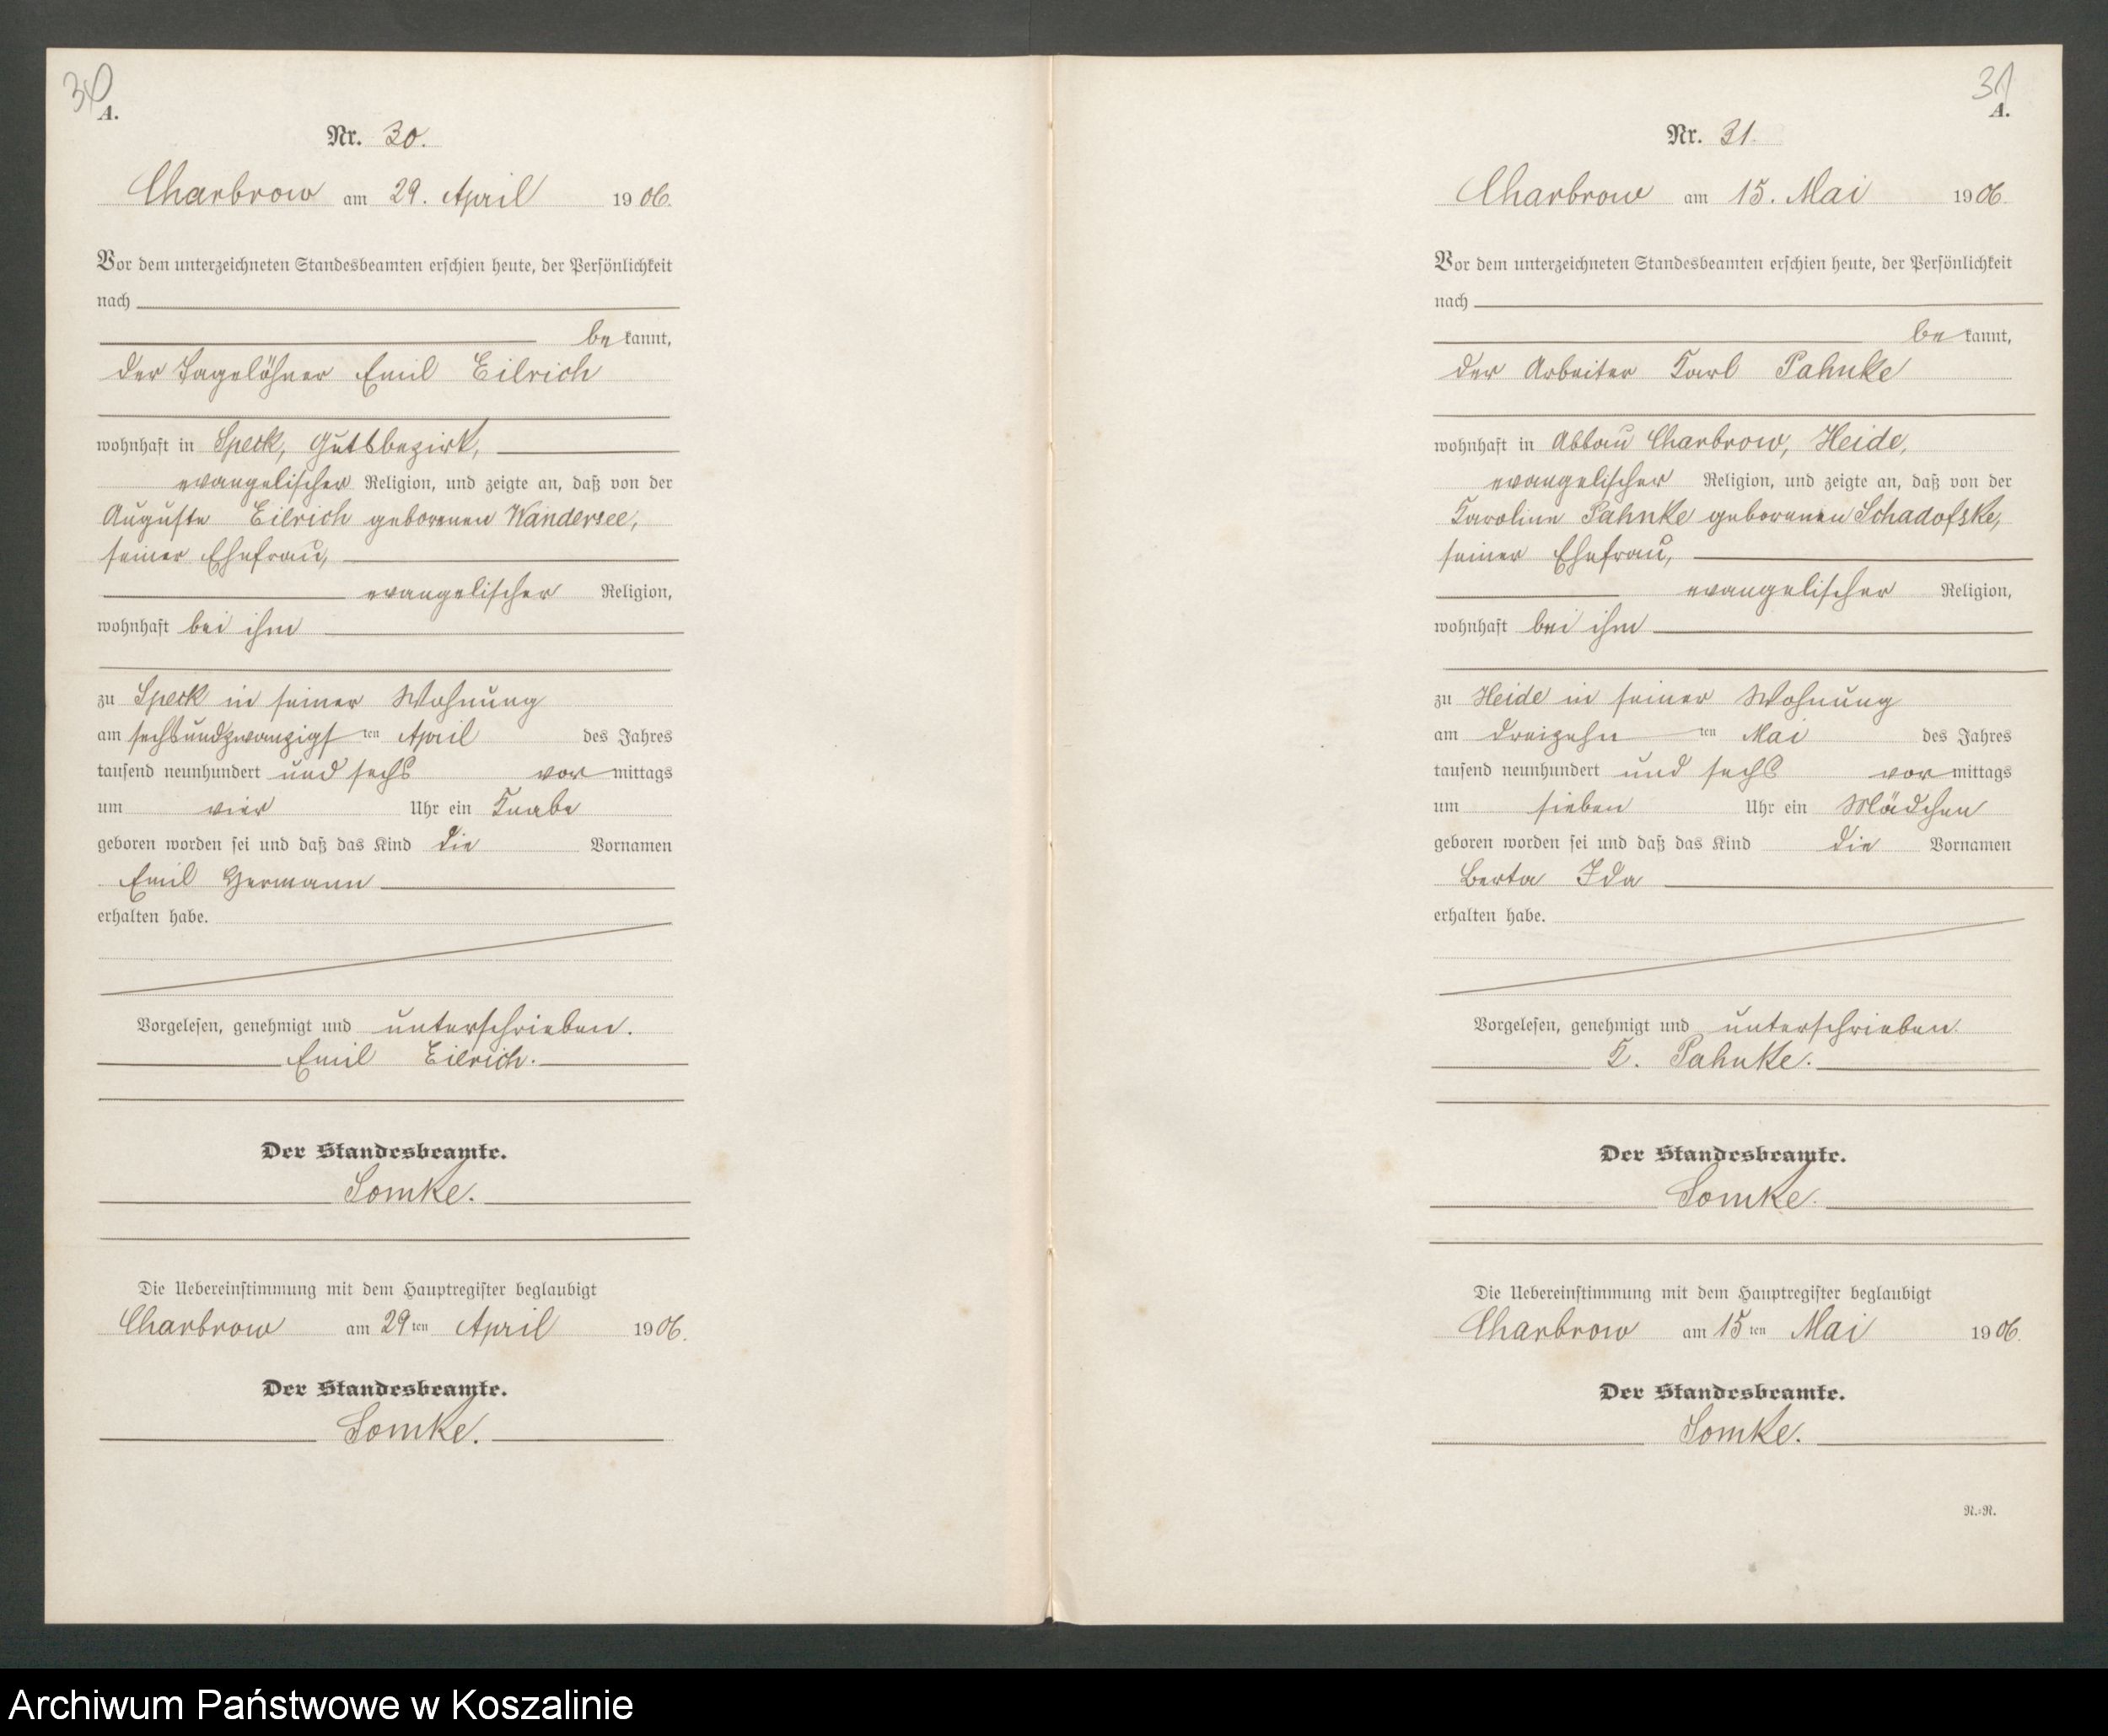 30
A.
Nr. 30.
Charbrow am 29. April 1906.
Vor dem unterzeichneten Standesbeamten erschien heute, der Persönlichkeit
nach
be kannt,
der Tagelöhner Emil Eilrich
wohnhaft in Speck, Gutsbezirk,
evangelischer Religion, und zeigte an, daß von der
Auguste Eilrich geborenen Wandersee,
seiner Ehefrau,
evangelischer Religion,
wohnhaft bei ihm
zu Speck in seiner Wohnung
am sechsundzwanzigs ten April des Jahres
tausend neunhundert und sechs vor mittags
um vier Uhr ein Knabe
geboren worden sei und daß das Kind die Vornamen
Emil Hermann
erhalten habe.
Vorgelesen, genehmigt und unterschrieben.
Emil Eilrich.
Der Standesbeamte.
Somke.
Die Uebereinstimmung mit dem Hauptregister beglaubigt
Charbrow am 29 ten April 1906.
Der Standesbeamte.
Somke.
31
A.
Nr. 31.
Charbrow am 15. Mai 1906.
Vor dem unterzeichneten Standesbeamten erschien heute, der Persönlichkeit
nach
be kannt,
der Arbeiter Karl Pahnke
wohnhaft in Abbau Charbrow, Heide,
evangelischer Religion, und zeigte an, daß von der
Karoline Pahnke geborenen Schadofske,
seiner Ehefrau,
evangelischer Religion,
wohnhaft bei ihm
zu Heide in seiner Wohnung
am dreizehn ten Mai des Jahres
tausend neunhundert und sechs vor mittags
um sieben Uhr ein Mädchen
geboren worden sei und daß das Kind die Vornamen
Berta Ida
erhalten habe.
Vorgelesen, genehmigt und unterschrieben.
K. Pahnke.
Der Standesbeamte.
Somke.
Die Uebereinstimmung mit dem Hauptregister beglaubigt
Charbrow am 15 ten Mai 1906.
Der Standesbeamte.
Somke.
R.=R.
Archiwum Państwowe w Koszalinie